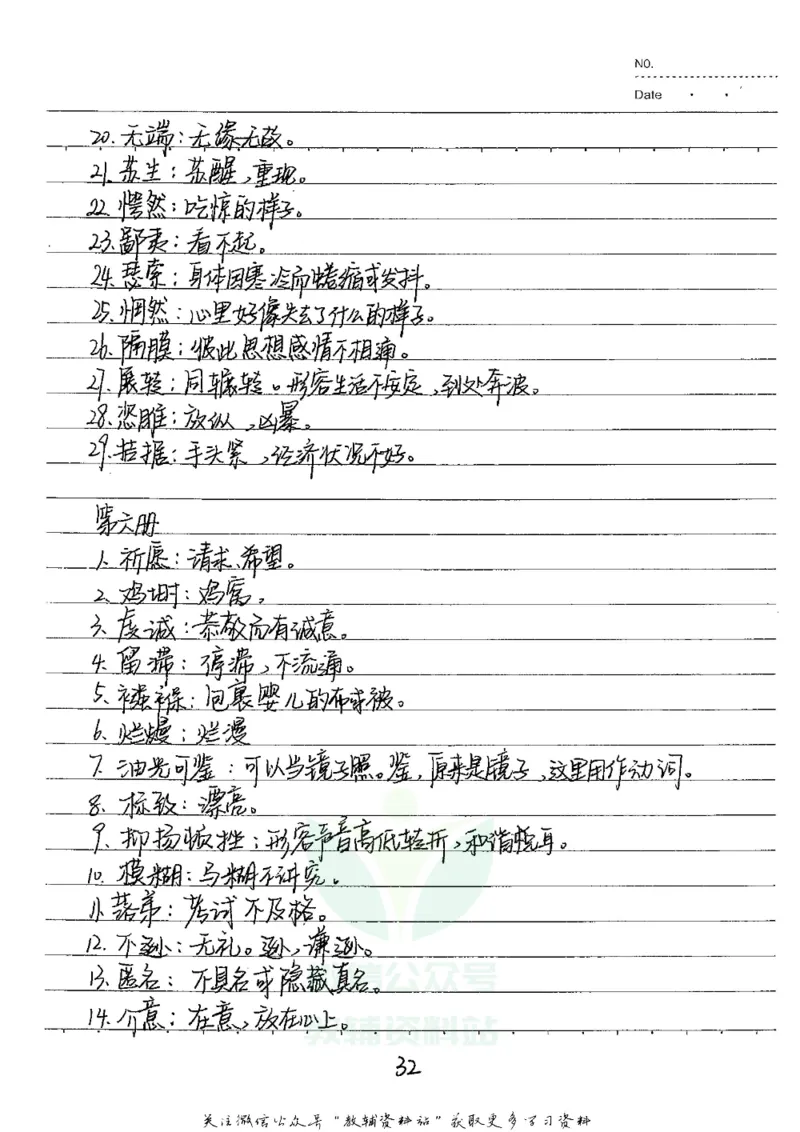 NO.
Date
20. 无端：无缘无故。
21. 苏生：苏醒，重现。
22. 愕然：吃惊的样子。
23. 鄙夷：看不起。
24. 瑟索：身体因寒冷而蜷缩或发抖。
25. 惘然：心里好像失去了什么的样子。
26. 隔膜：彼此思想感情不相通。
27. 展转：同辗转。形容生活不安定，到处奔波。
28. 恣睢：放纵，凶暴。
29. 拮据：手头紧，经济状况不好。
第六册
1. 祈愿：请求、希望。
2. 鸡埘：鸡窝，
3. 虔诚：恭敬而有诚意。
4. 留滞：停滞，不流通。
5. 襁褓：包裹婴儿的布或被。
6. 烂熳：烂漫
7. 油光可鉴：可以当镜子照。鉴，原来是镜子，这里用作动词。
8. 标致：漂亮。
9. 抑扬顿挫：形容声音高低转折，和谐悦耳。
10. 模糊：马糊不讲究。
11. 落第：考试不及格。
12. 不逊：无礼。逊，谦逊。
13. 匿名：不具名或隐藏真名。
14. 介意：在意，放在心上。
教辅公众号
教辅资料站
32
关注微信公众号“教辅资料站”获取更多学习资料